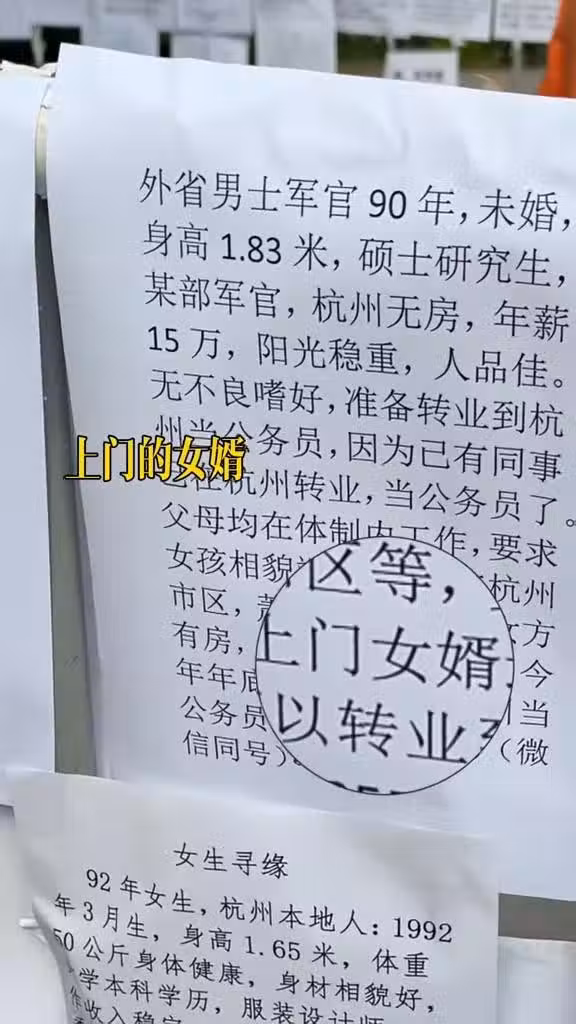 外省男士军官 90 年，未婚，
身高 1.83 米，硕士研究生，
某部军官，杭州无房，年薪
15 万，阳光稳重，人品佳。
无不良嗜好，准备转业到杭
州当公务员，因为已有同事
杭州转业，当公务员了。
上门的女婿
父母均在体制内工作，要求
女孩相貌 杭州
市区， 方
有房， 今
年年底 当
公务员 （微
信同号）
区等，
上门女婿
以转业
女生寻缘
92 年女生，杭州本地人：1992
年 3 月生，身高 1.65 米，体重
50 公斤身体健康，身材相貌好，
学本科学历，服装设计师
作收入稳定